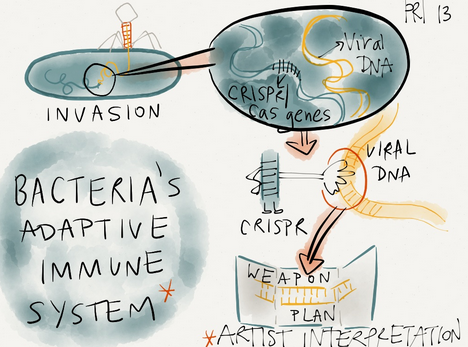 PRI 13
INVASION
Viral
DNA
CRISPR/
Cas genes
VIRAL
DNA
CRISPR
BACTERIA'S
ADAPTIVE
IMMUNE
SYSTEM*
WEAPON
PLAN
*ARTIST INTERPRETATION